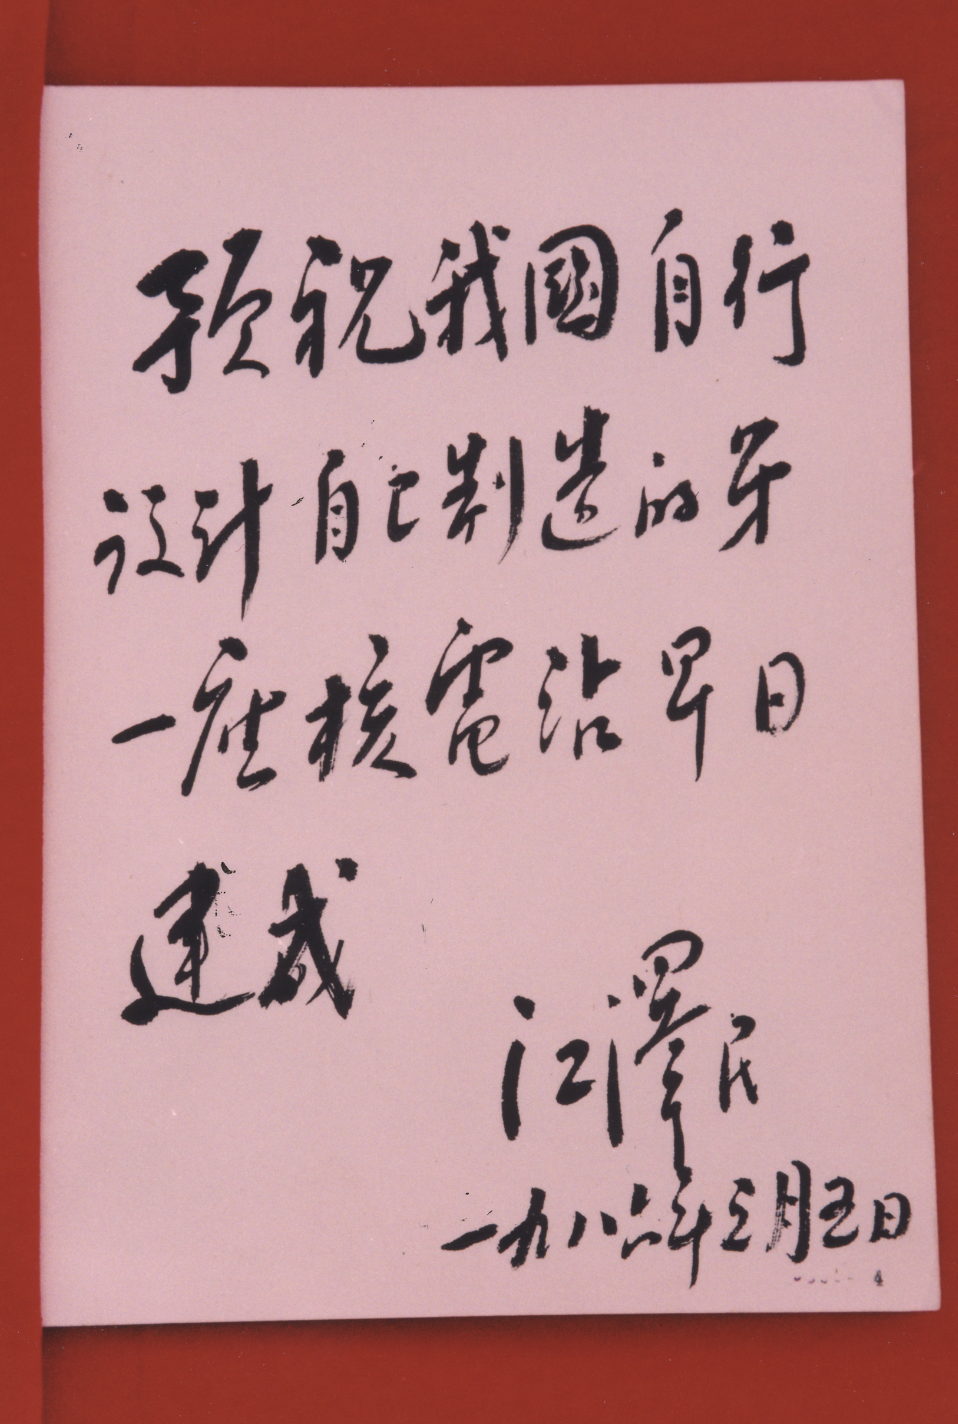 预祝我國自行
设计自己制造的第
一座核電站早日
建成
江澤民
一九八六年三月五日
4